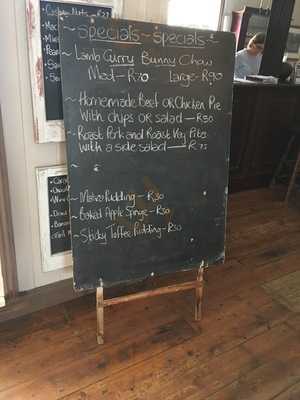 Specials ~ Specials ~
~ Lamb Curry Bunny Chow
Med - R70 Large - R90
~ Homemade Beef OR Chicken Pie
With chips OR salad - R80
~ Roast Pork and Roast Veg Pita
with a side salad - R75
~ Malva Pudding - R50
~ Baked Apple Sponge - R50
~ Sticky Toffee Pudding - R50